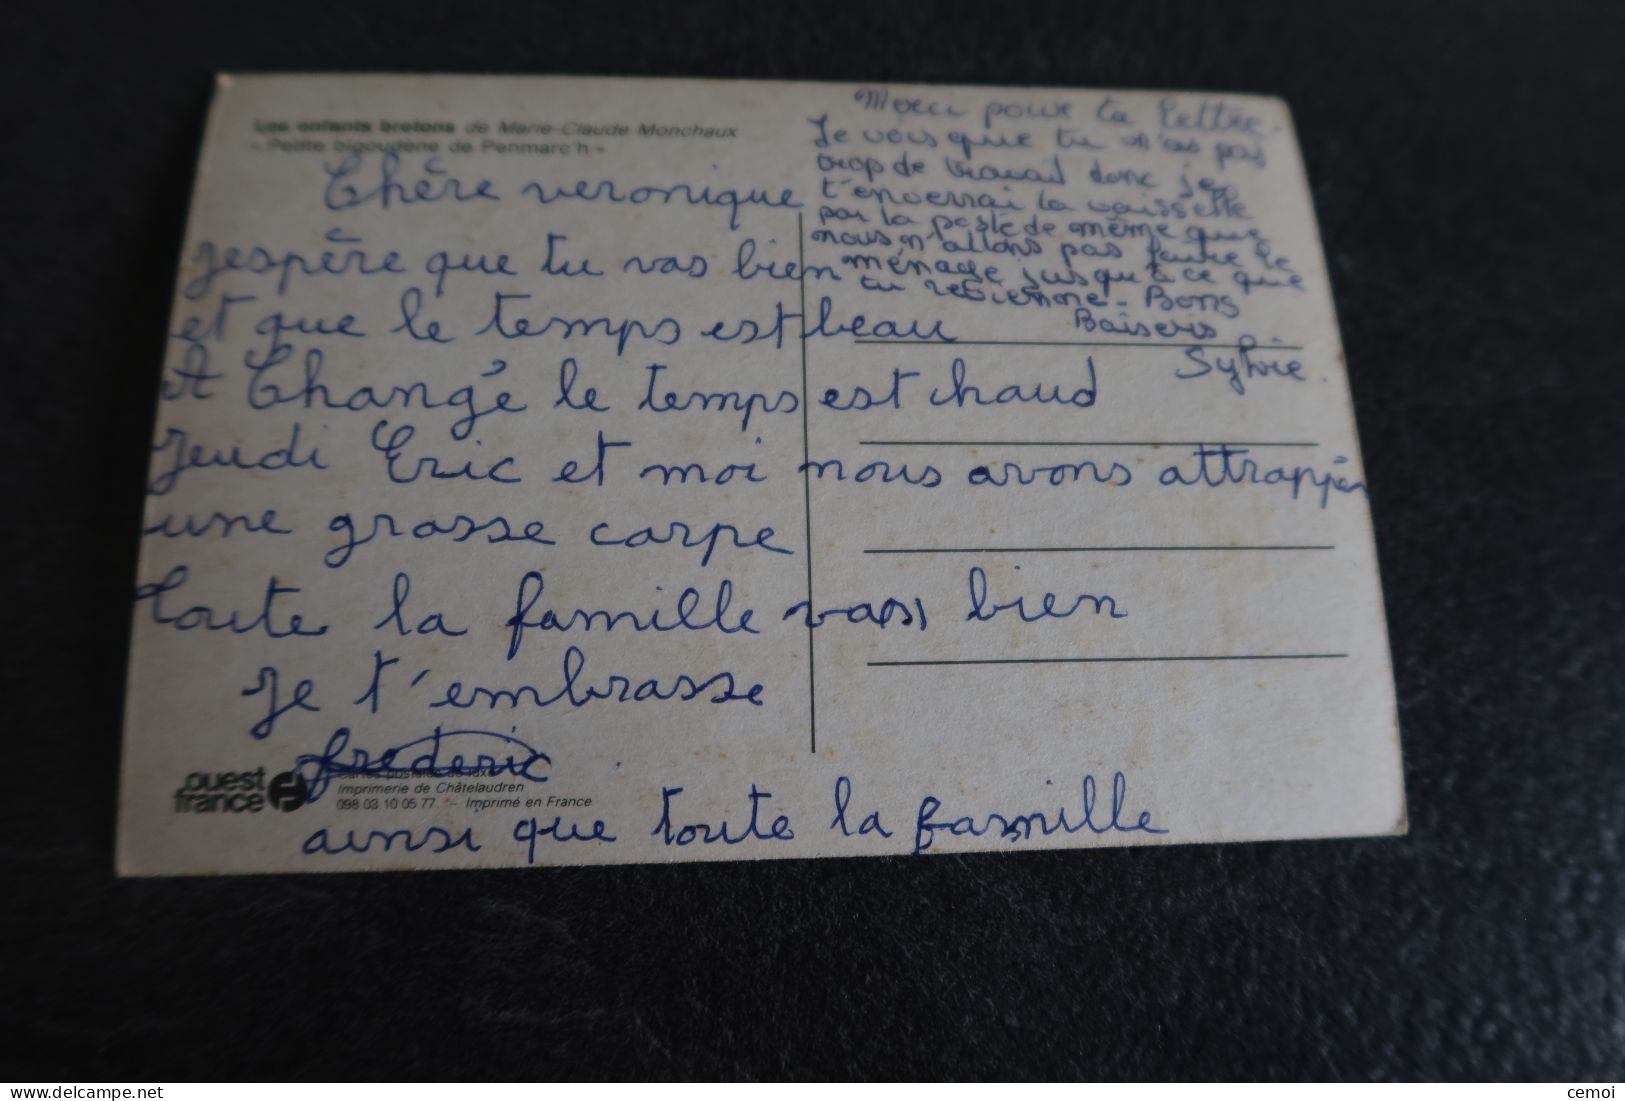 Les enfants bretons de Marie-Claude Monchaux
- Petite bigoudène de Penmarc'h -
Chère veronique
jespère que tu vas bien
et que le temps est beau
A Changé le temps est chaud
jeudi Eric et moi nous avons attrappér
une grosse carpe
Toute la famille vas bien
je t'embrasse
frederic
ainsi que toute la famille
Merci pour ta lettre.
Je vois que tu n'as pas
trop de travail donc je
t'enverrai la vaisselle
par la poste de même que
nous n'allons pas faire le
ménage jusqu'à ce que
tu revienne - Bons
Baisers
Sylvie.
ouest
france
Cartes postales de luxe
Imprimerie de Châtelaudren
098 03 10 05 77 - Imprimé en France
cemoi